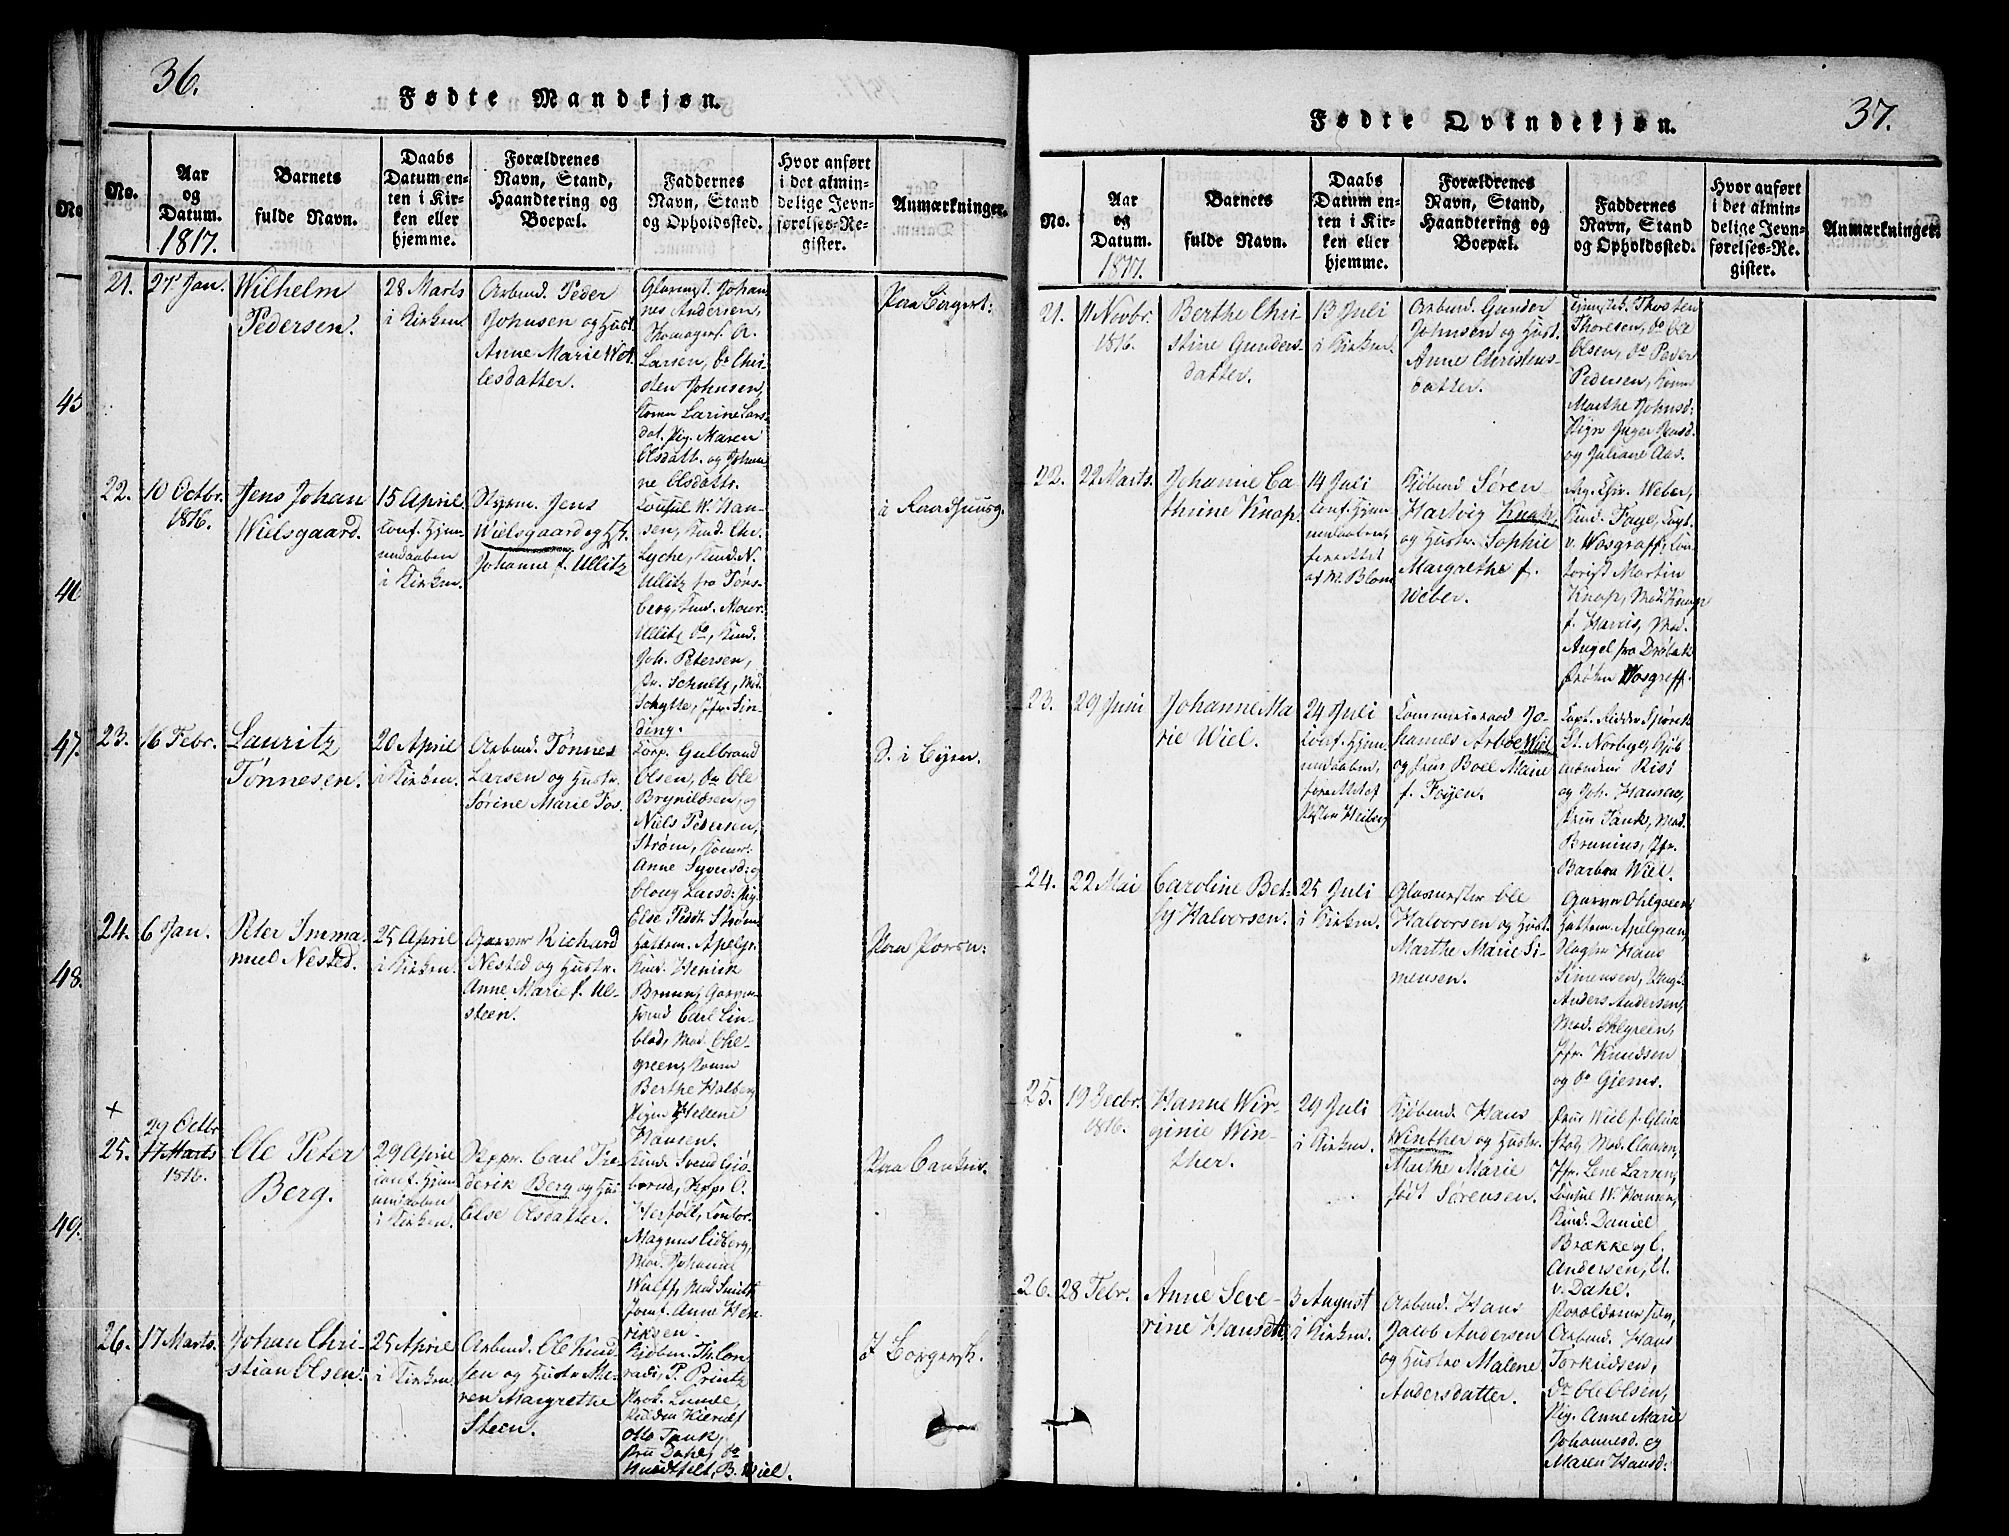 36.
Fødte Mandkjøn.
No.
Aar
og
Datum.
1817.
Barnets
fulde Navn.
Daabs
Datum en-
ten i Kir-
ken eller
hjemme.
Forældrenes
Navn, Stand,
Haandtering og
Boepæl.
Faddernes
Navn, Stand
og Opholdssted.
Hvor anført
i det almin-
delige Jevn-
førelses-Re-
gister.
Anmærkninger.
21.
27 Jan.
Wilhelm
Pedersen.
28 Marts
i Kirken
Arbmd. Peder
Johnsen og Hust.
Anne Marie
lesdatter.
Johan
nes Andersen,
Larsen, do Chri
sten Johnsen,
Larine Lars
dat. Pig. Maren
Olsdatt. og Johan
ne Olsdattr.
22.
10 Octbr.
1816.
Jens Johan
Wielsgaard.
15 April
conf. Hjem
medaaben
i Kirken.
Styrm. Jens
Wielsgaard og H.
Johanne f. Ullitz
Consul W. Han-
sen, Kmd. Chr.
Lyche, Kmd. N.
Ullitz fra Tøns
berg, Kmd. Maur.
Ullitz do, Kmd.
Joh. Petersen,
Fr. Schultz, Md.
Schytte, Jfr. Lin-
ding.
23.
16 Febr.
Lauritz
Tønnesen.
20 April
i Kirken.
Arbmd. Tønnes
Larsen og Hustr.
Sørine Marie Tos.
Corp. Gulbrand
Olsen, do Ole
Brynildsen, og
Niels Pedersen,
Strøm, Koner:
Anne Syversd: og
Larsd: Pig.
Else Pedt: Strøm
24.
6 Jan.
Peter Imma
nuel Nested.
25 April
i Kirken.
Garver Richard
Nested og Hustr.
Anne Marie f. Ul-
steen.
Hattem. Apelgr.
Kmd. Henrik
Bruun, Garver
svend Carl Lin
blad, Mad. Ohl-
green, Konen
Berthe Halberg
Pigen Helene
Hansen.
+
25.
29 Octbr
17 Marts
1816.
Ole Peter
Berg.
29 April
conf. Hjem
medaaben
i Kirken.
Skppr. Carl Fre
derik Berg og Hu
Else Olsdatter.
Kmd. Svend
Skppr. O.
Herføll, Contor.
Magnus Lidberg,
Mad. Johanne
Wulff, Mad Smith
Jomf. Anne Hen
riksen.
26.
17 Marts.
Johan Chri-
stian Olsen.
25 April
i Kirken.
Arbmd. Ole Knud
sen og Hustr Ma-
ren Margrethe
Steen.
Kjøbm. Th. Con
radi, P. Printz
Prok. Lunde,
Otto Tank,
Fru Dahl, do
Huitfelt, B. Wiel.
37.
Fødte Qvindekjøn.
No.
Aar
og
Datum.
1817.
Barnets
fulde Navn.
Daabs
Datum en-
ten i Kir-
ken eller
hjemme.
Forældrenes
Navn, Stand,
Haandtering og
Boepæl.
Faddernes
Navn, Stand
og Opholdssted.
Hvor anført
i det almin-
delige Jevn-
førelses-Re-
gister.
Anmærkninger.
21.
11 Novbr.
1816.
Berthe Chri
stine Gunders-
datter.
13 Juli
i Kirken
Arbmd. Gunder
Johnsen og Hust.
Anne Christens-
datter.
Thosten
Thoresen, do Ole
Olsen, do Peder
Pedersen, Konen
Marthe Johnsd:
Pigen Inger Jensd.
og Juliane Aas.
22.
22 Marts.
Johanne Ca
thrine Knap.
14 Juli
conf. Hjem
medaaben,
forrettet
af M. Blom
Kjøbmd Søren
Hartvig Knap,
og Hustr. Sophie
Margrethe f.
Weber.
Weber,
Kmd. Foye, Capt.
v. Wosgraff, Con
torist Martin
Knap, Mad. Knap
f. Harris, Mad.
Angel fra Drøbak
Frøken Wosgraff.
23.
29 Juni
Johanne Ma
rie Wiel.
24 Juli
conf. Hjem
medaaben,
Commerceraad Jo-
hannes Arboe Wiel
og Frue Boel Marie
f. Foyen.
Capt. Ridder Spørck
Lt. Norbye, Kjøb
mænnene Rist
og Joh. Hansen,
Frue Tanks, Mad.
Brunius, Jfr.
Barbra Wiel.
24.
22 Mai
Caroline Bet-
sy Halvorsen.
25 Juli
i Kirken.
Glasmester Ole
Halvorsen og Hust.
Marthe Marie Si-
mensen.
Garver Ohlgreen,
Hattem. Apelgren,
Slagter Hans
Simensen, Ungk.
Anders Andersen,
Mad. Ohlgreen,
Jfr. Knudsen
og do Gjems.
25.
19 Decbr.
1816.
Hanne Wir-
ginie Win-
ther.
29 Juli
i Kirken.
Kjøbmd. Hans
Winther og Hustr.
Marthe Marie
født Sørensen.
Frue Wiel f. Glük
stad, Mad. Clausen,
Jfr. Lene Larsen,
Consul W. Hansen,
Kmd. Daniel
Brække og C.
Andersen, Lt.
v. Dahl.
26.
28 Febr.
Anne Seve-
rine Hansdtr.
3 August
i Kirken.
Arbmd. Hans
Jacob Andersen
og Hustro Malene
Andersdatter.
Forældrene selv,
Arbmd. Hans
Torkildsen,
do Ole Olsen,
Pig. Anne Marie
Johannesd. og
Maren Hansd.
No
45
46
47.
48.
49.